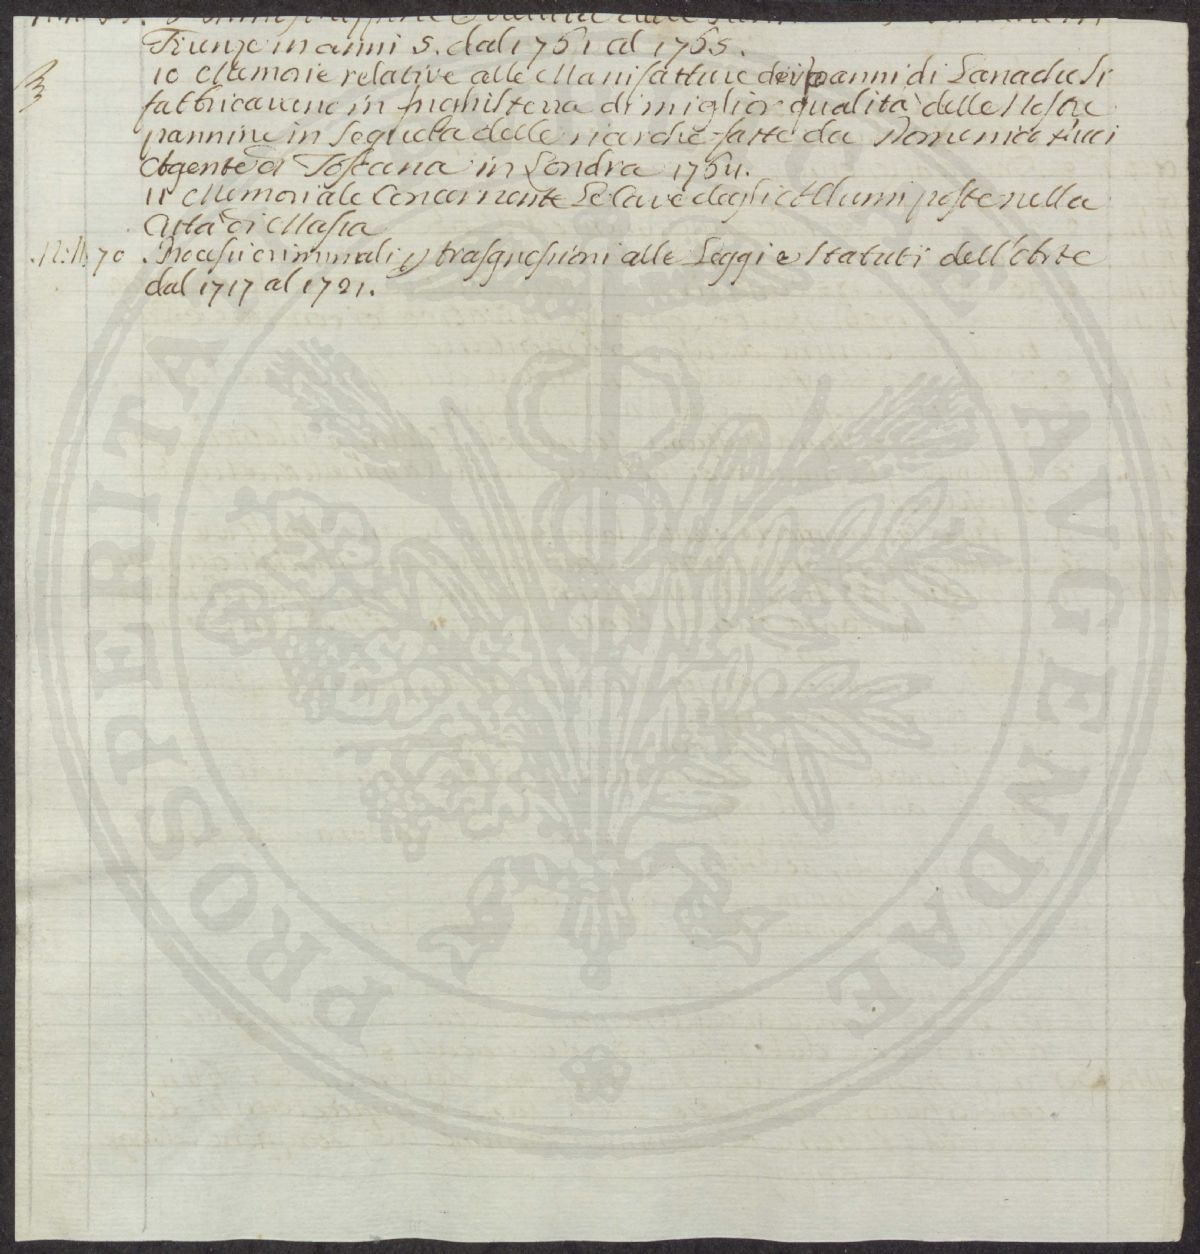 Firenze in anni 5. dal 1761 al 1765.
10 Memorie relative alle Manifatture dei panni di Lana che si
fabbricavano in Inghilterra di miglior qualità delle Nostre
pannine in Seguela delle ricerche fatte da Domenico
Agente di Toscana in Londra 1764.
11 Memoriale Concernente Le Cave degli Allumi poste nella
Città di Massa
N: 70 . Processi criminali p trasgressioni alle Leggi e Statuti dell'Arte
dal 1717 al 1721.
PROSPERITATI AVGENDAE